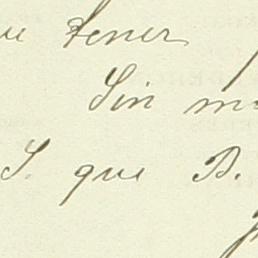 tener
Sin
S. que B.